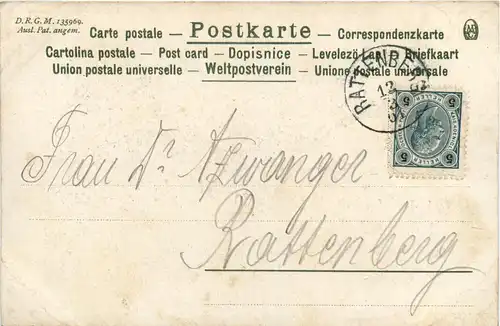 D. R. G. M. 135969.
Ausl. Pat. angem.
Carte postale – Postkarte – Correspondenzkarte
Cartolina postale – Post card – Dopisnice – Levelező-Lap – Briefkaart
Union postale universelle – Weltpostverein – Unione postale universale
RATTENBERG
5 5
HELLER HELLER
5 5
Frau Dr Atzwanger
Rattenberg